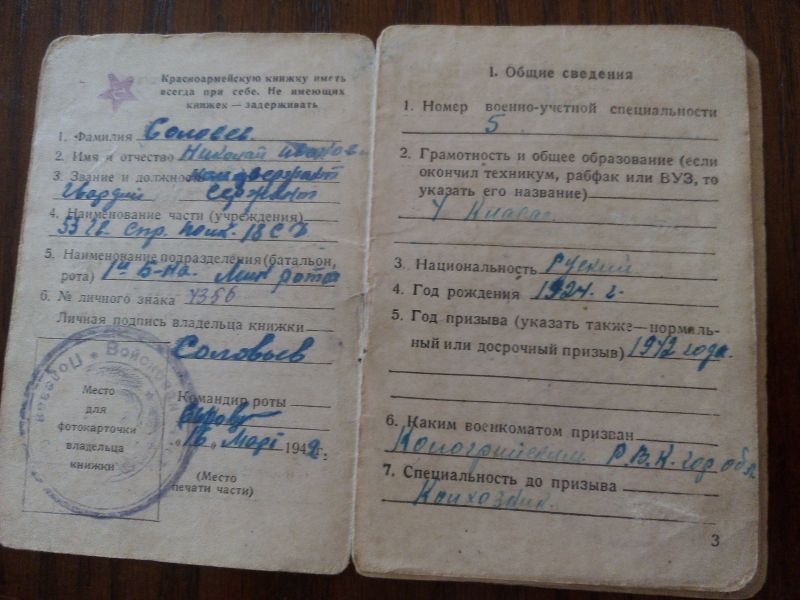 Красноармейскую книжку иметь
всегда при себе. Не имеющих
книжек — задерживать
1. Фамилия Соловьев
2. Имя и отчество Николай
3. Звание и должность
Гвардии Сержант
4. Наименование части (учреждения)
53 Гв. Стр. полк. 18 С Д
5. Наименование подразделения (батальон,
рота) 1й Б-на. Мин рота
6. № личного знака 4356
Личная подпись владельца книжки
Соловьев
Командир роты
„16„ 1942 г.
(Место
печати части)
Место
для
фотокарточки
владельца
книжки
1. Общие сведения
1. Номер военно-учетной специальности
5
2. Грамотность и общее образование (если
окончил техникум, рабфак или ВУЗ, то
указать его название)
4 Класса
3. Национальность Руский
4. Год рождения 1924 г.
5. Год призыва (указать также — нормаль-
ный или досрочный призыв) 1942 года.
6. Каким военкоматом призван
Кологривским Р.В.К. обл
7. Специальность до призыва
Колхозник.
3